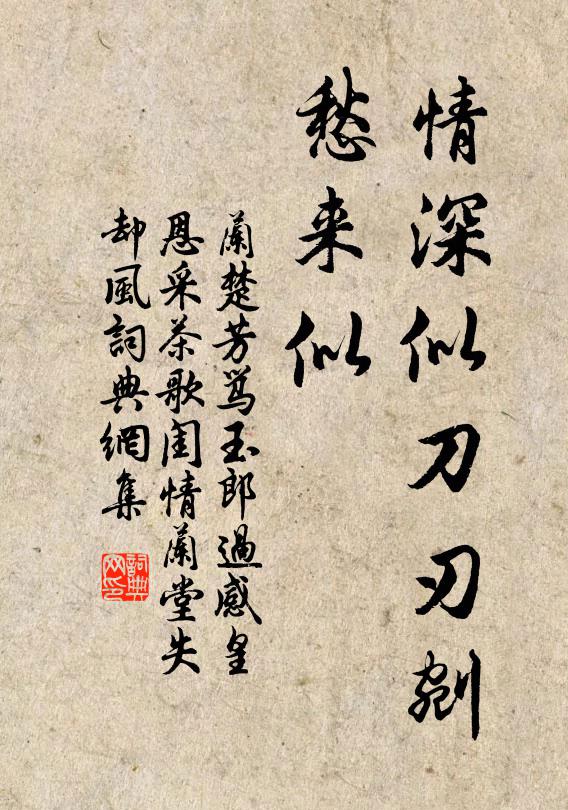 情深似刀刃剜
愁来似
蘭楚芳罵玉郎過感皇
恩采茶歌閨情蘭堂失
却風詞典網集
詞典
网印